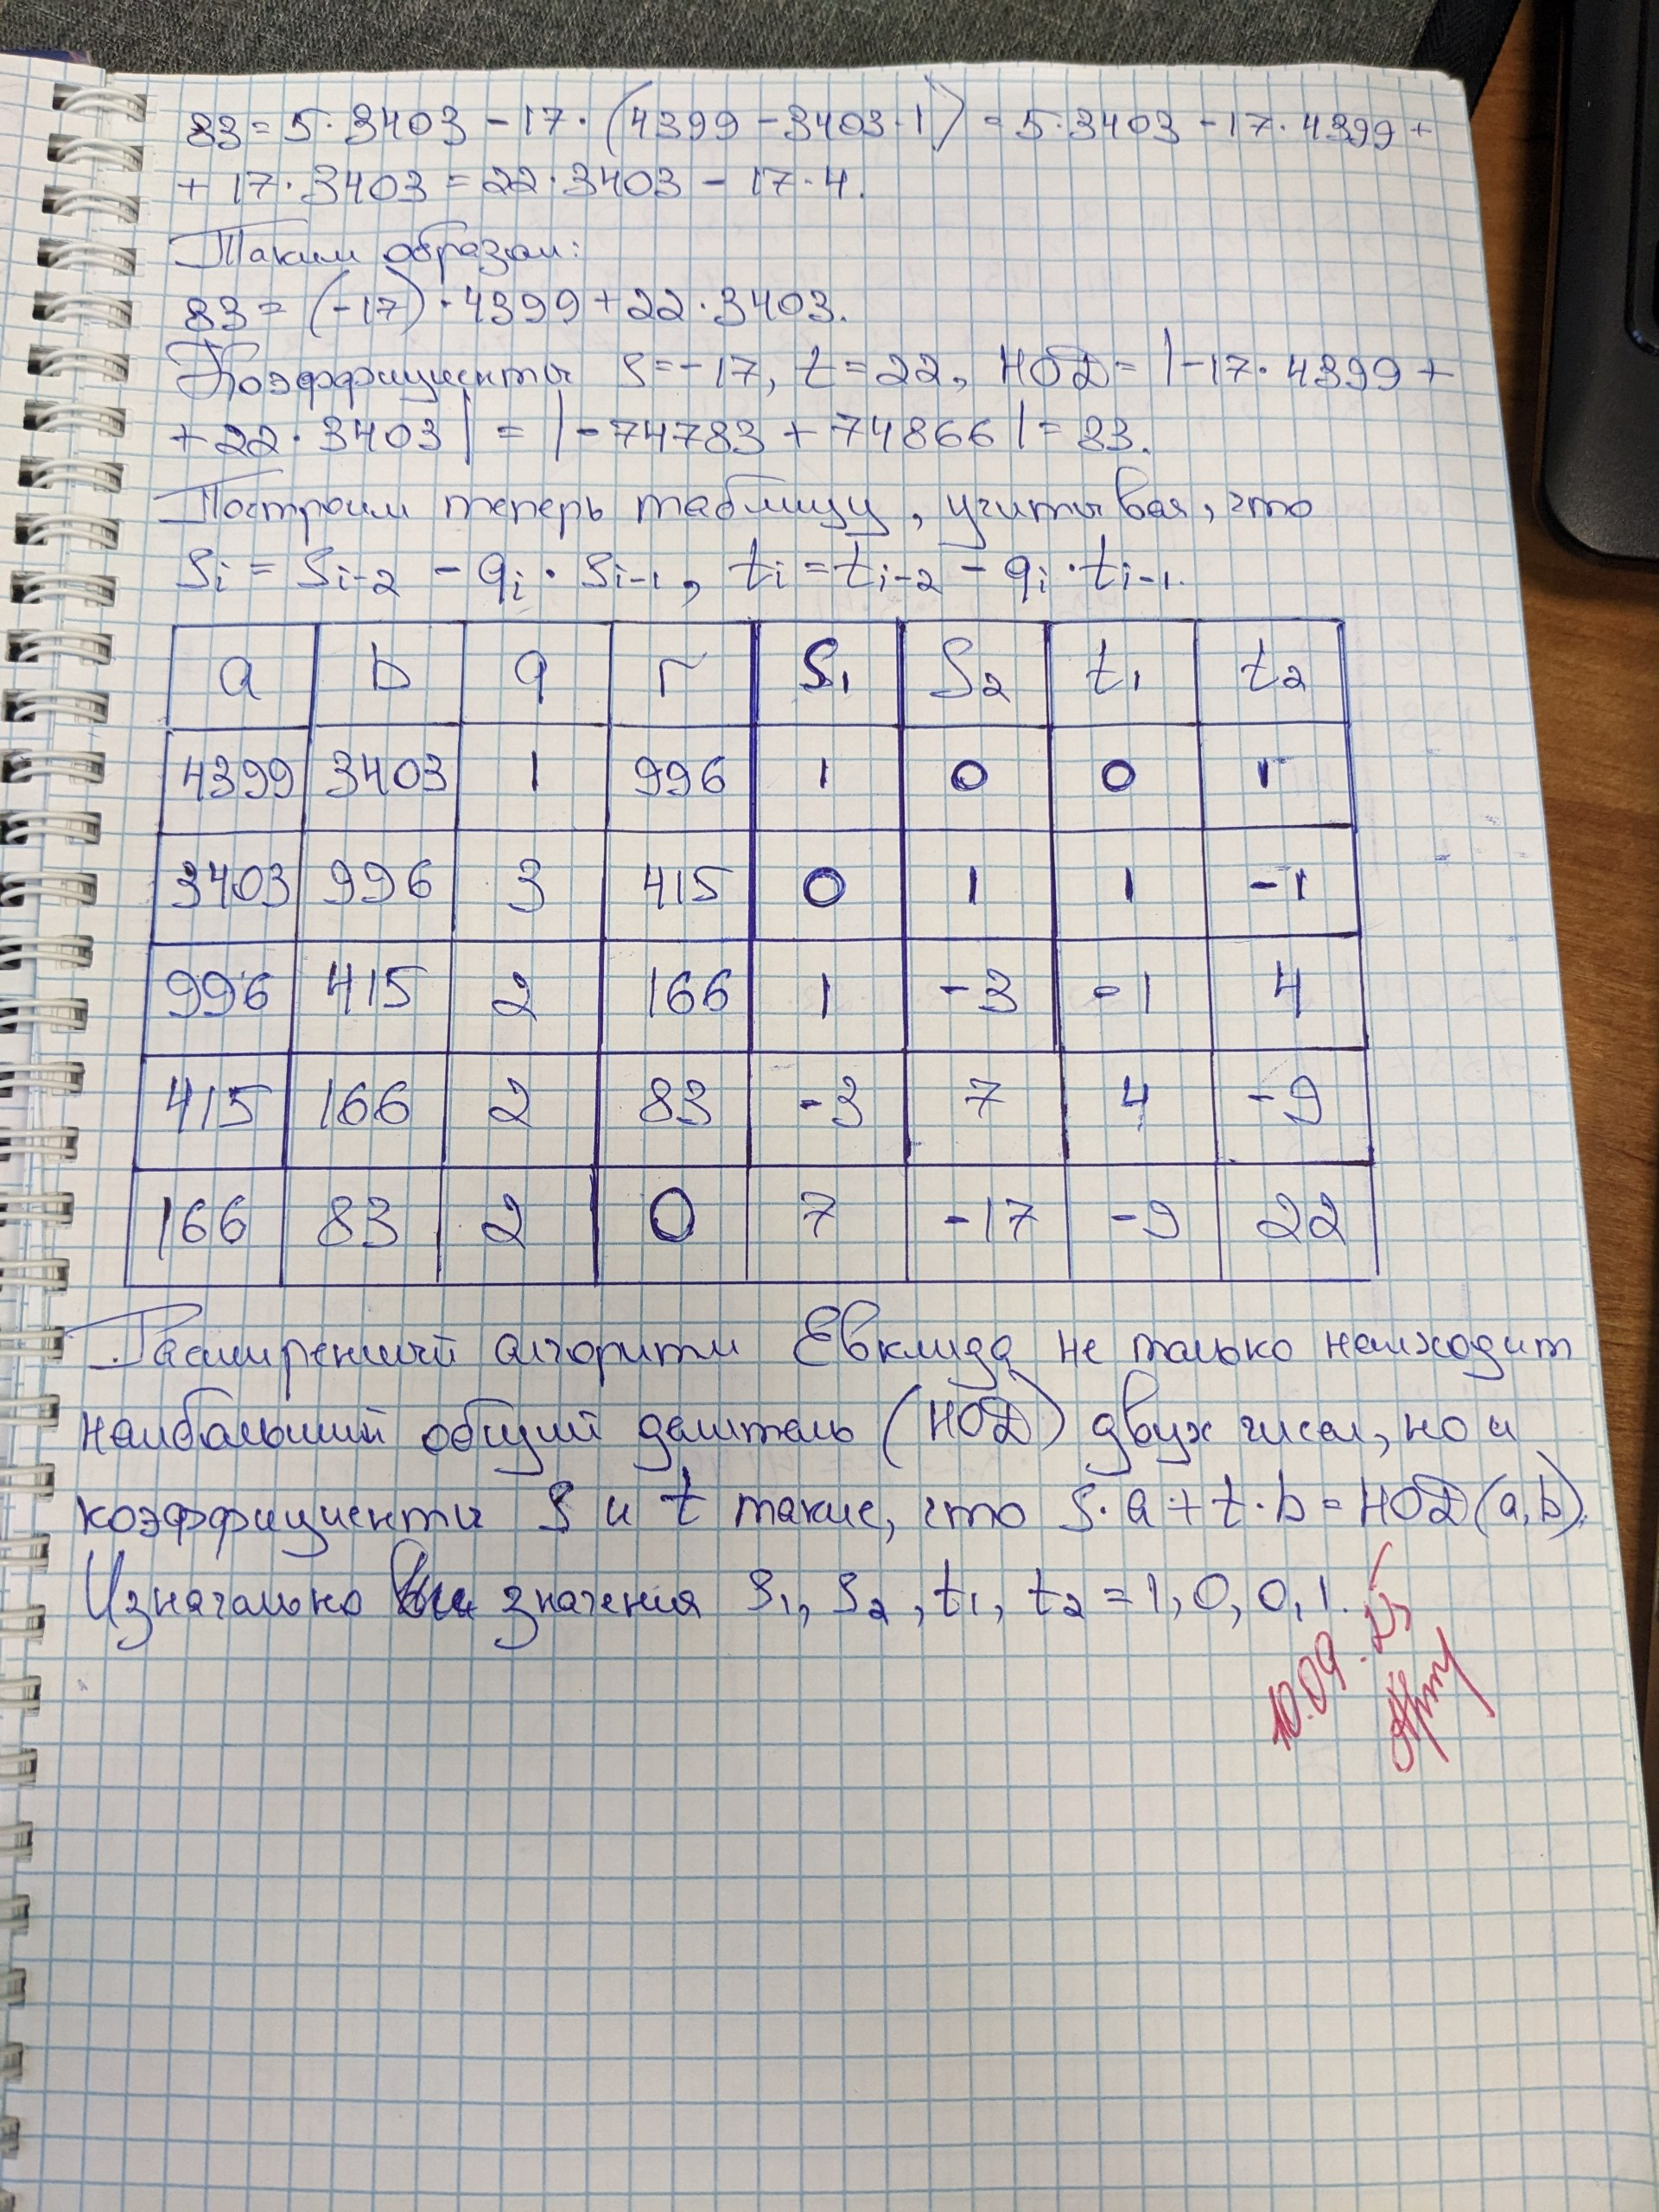 83 = 5·3403 - 17·(4399 - 3403·1) = 5·3403 - 17·4399 +
+ 17·3403 = 22·3403 - 17·4.
Таким образом:
83 = (-17)·4399 + 22·3403.
Коэффициенты S = -17, t = 22, НОД = |-17·4399 +
+ 22·3403| = |-74783 + 74866| = 83.
Построим теперь таблицу, учитывая, что
Si = Si-2 - qi · Si-1, ti = ti-2 - qi · ti-1.
a b q r S1 S2 t1 t2
4399 3403 1 996 1 0 0 1
3403 996 3 415 0 1 1 -1
996 415 2 166 1 -3 -1 4
415 166 2 83 -3 7 4 -9
166 83 2 0 7 -17 -9 22
Расширенный алгоритм Евклида не только находит
наибольший общий делитель (НОД) двух чисел, но и
коэффициенты S и t такие, что S·a + t·b = НОД(a,b).
Изначально значения S1, S2, t1, t2 = 1, 0, 0, 1.
10.09.25